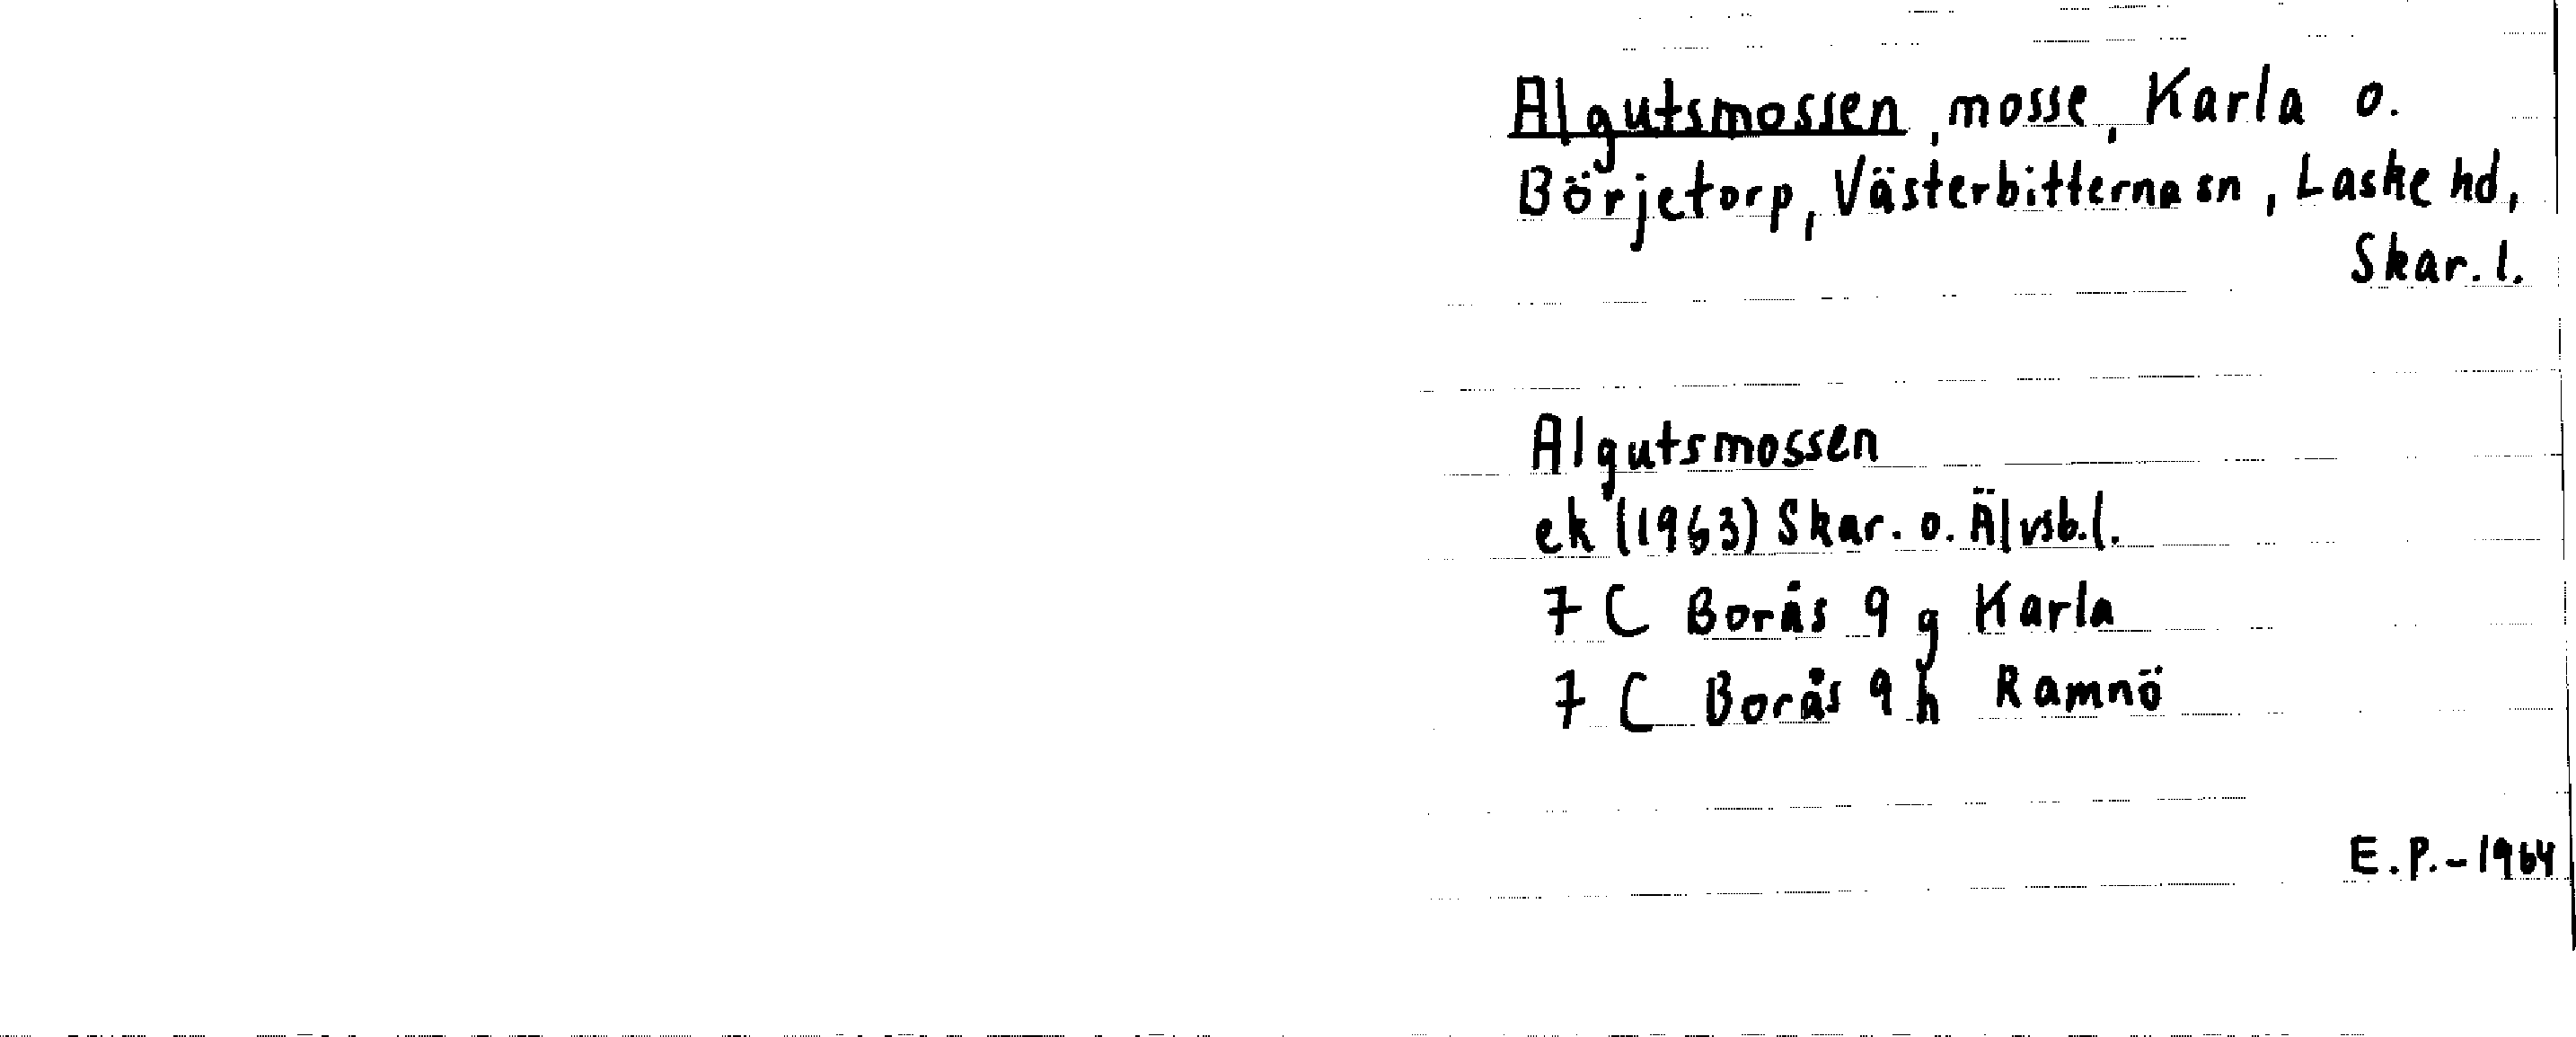 Algutsmossen, mosse, Karla o.
Börjetorp, Västerbitterna sn, Laske hd,
Skar. l.
Algutsmossen
ek (1963) Skar. o. Älvsb. l.
7 C Borås 9 g Karla
7 C Borås 9 h Ramnö
E.P.-1964